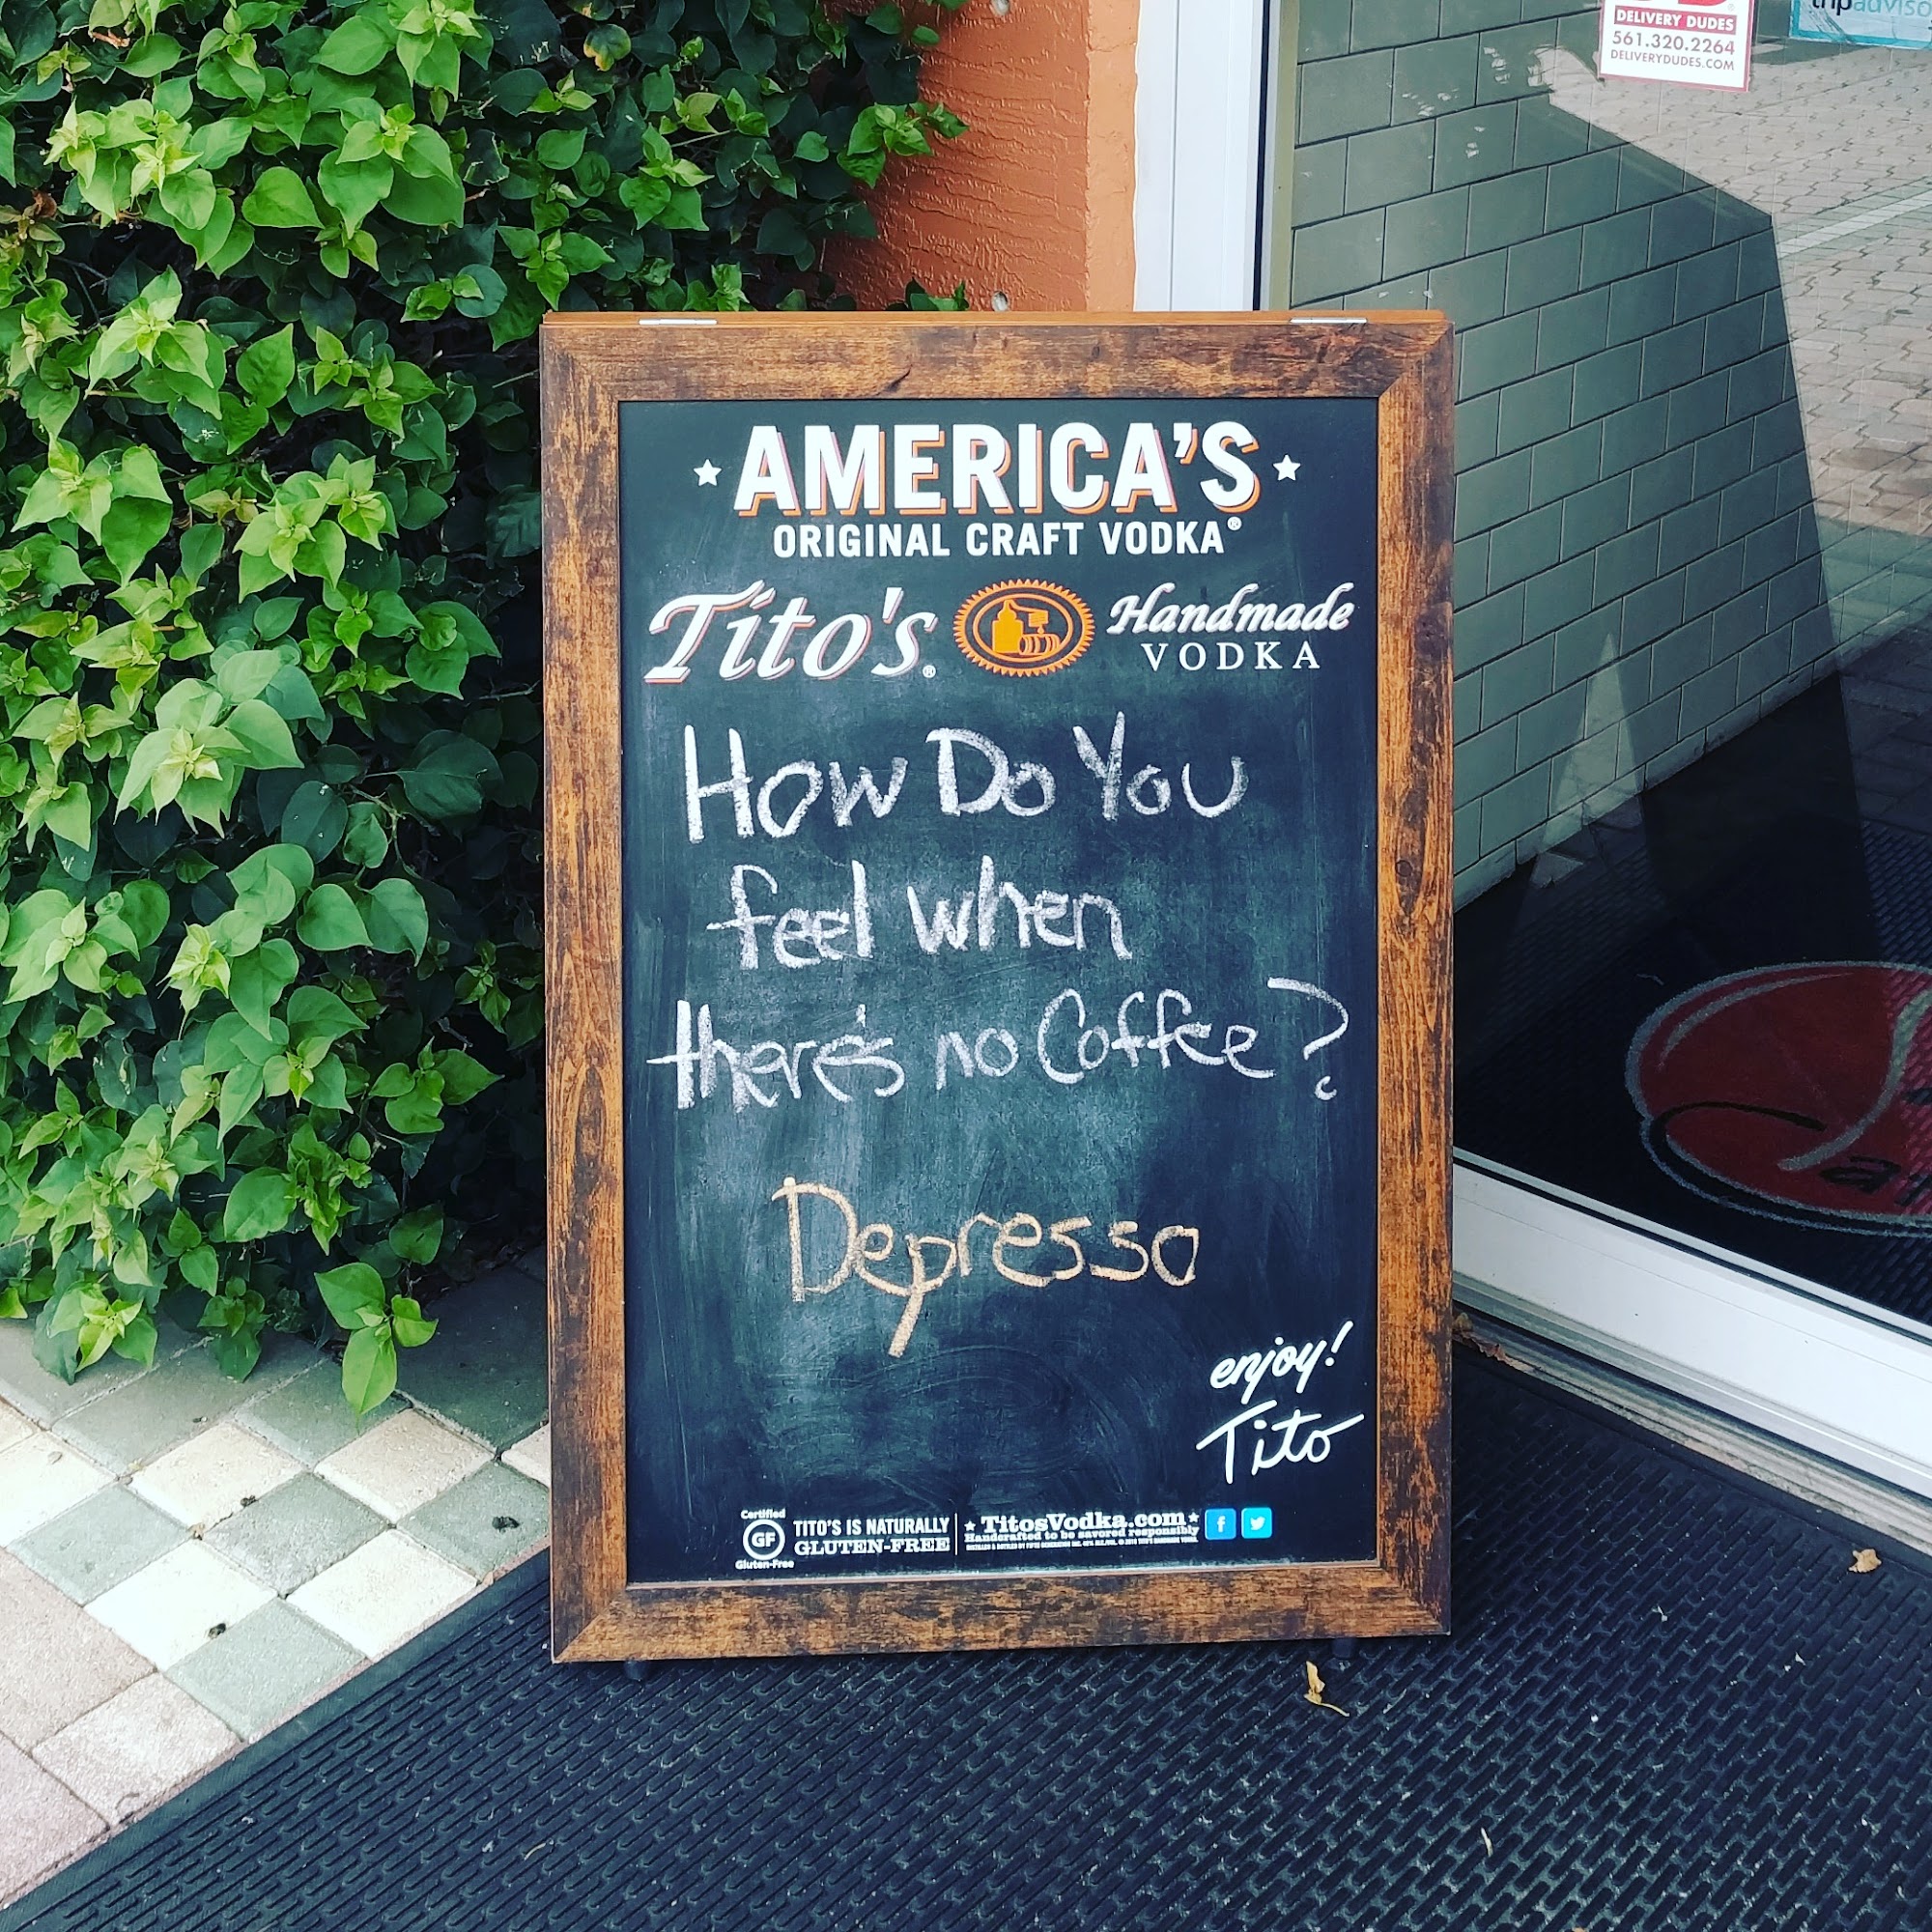 DELIVERY DUDES
561.320.2264
DELIVERYDUDES.COM
AMERICA'S
ORIGINAL CRAFT VODKA®
Tito's® Handmade
VODKA
How Do You
feel when
there's no Coffee?
Depresso
enjoy!
Tito
Certified
GF
Gluten-Free
TITO'S IS NATURALLY
GLUTEN-FREE
TitosVodka.com
Handcrafted to be savored responsibly